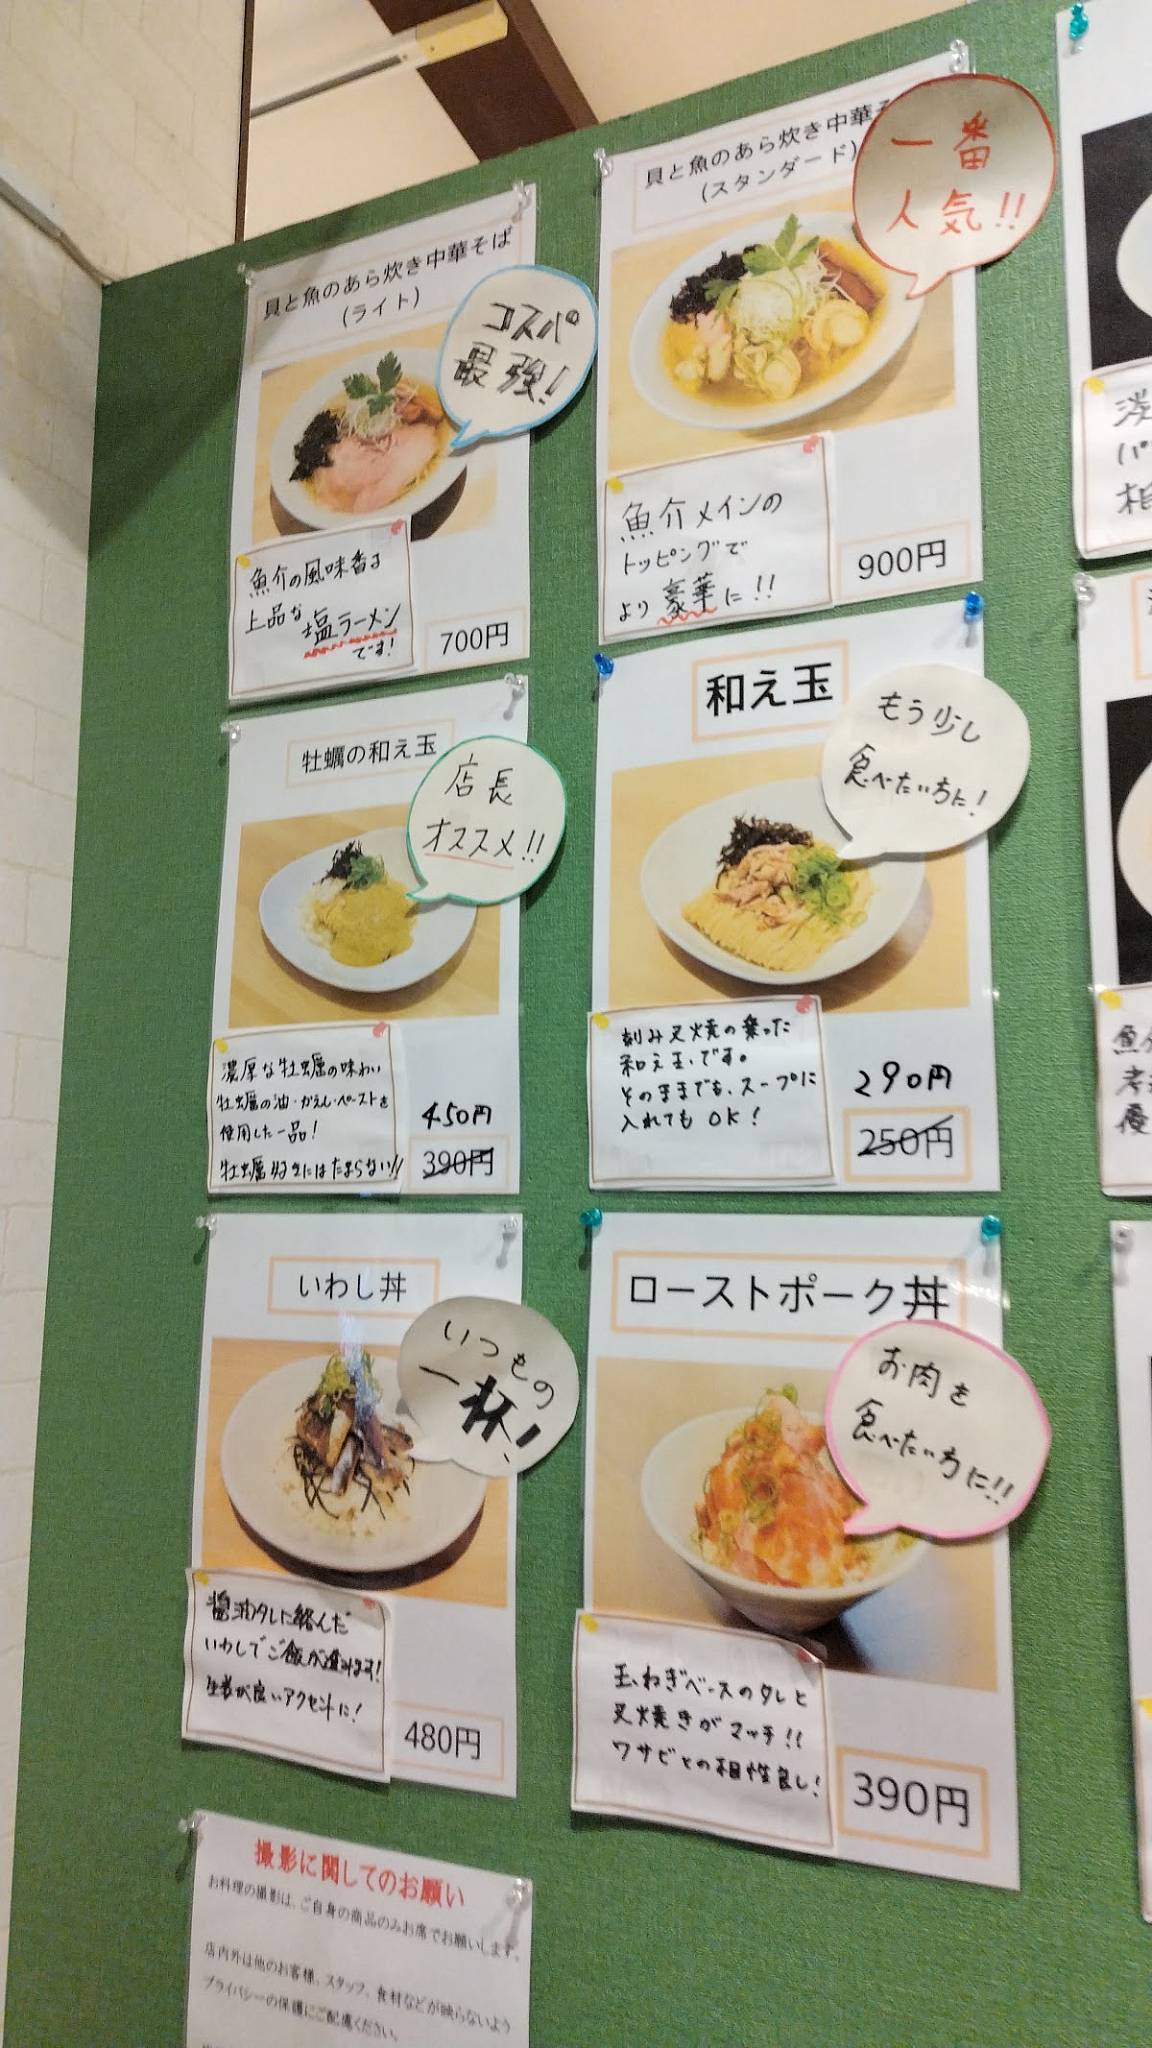 貝と魚のあら炊き中華そば
(ライト)
コスパ
最強!
魚介の風味香る
上品な塩ラーメン
です!
700円
貝と魚のあら炊き中華そ
(スタンダード)
一番
人気!!
魚介メインの
トッピングで
より豪華に!!
900円
牡蠣の和え玉
店長
オススメ!!
濃厚な牡蠣の味わい
牡蠣の油・かえし・ペーストを
使用した一品!
牡蠣好きにはたまらない!!
450円
390円
和え玉
もう少し
食べたい方に!
刻み叉焼の乗った
和え玉です。
そのままでも、スープに
入れてもOK!
290円
250円
いわし丼
いつもの
一杯!
醤油タレに絡んだ
いわしでご飯が進みます!
生姜が良いアクセントに!
480円
ローストポーク丼
お肉を
食べたい方に!!
玉ねぎベースのタレと
叉焼きがマッチ!!
ワサビとの相性良し!
390円
撮影に関してのお願い
お料理の撮影は、ご自身の商品のみお席でお願いします。
店内外は他のお客様、スタッフ、食材などが映らないよう
プライバシーの保護にご配慮ください。
淡
パ
相
魚介
優